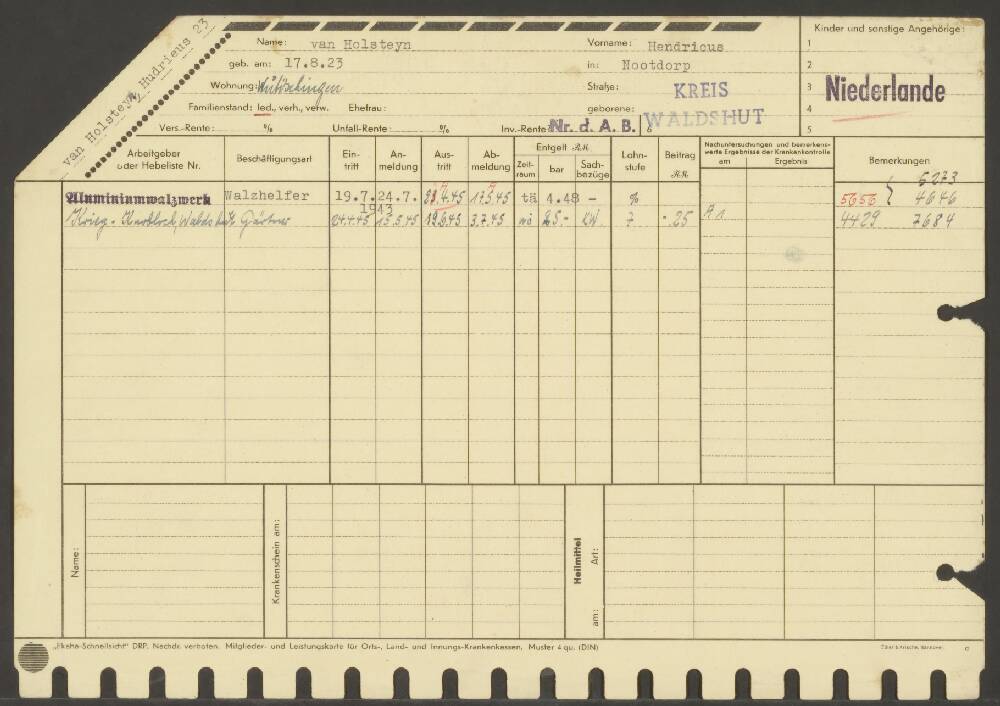 van Holsteyn, Hudrieus 23
Name: van Holsteyn Vorname: Hendricus
geb. am: 17.8.23 in: Nootdorp
Wohnung: Straße: KREIS
Familienstand: led., verh., verw. Ehefrau: geborene: WALDSHUT
Vers.-Rente: % Unfall-Rente: % Inv.-Rente Nr. d. A. B. 6
Kinder und sonstige Angehörige:
1
2
3 Niederlande
4
5
Arbeitgeber oder Hebeliste Nr. Beschäftigungsart Ein-tritt An-meldung Aus-tritt Ab-meldung Entgelt RM. Zeit-raum bar Sach-bezüge Lohn-stufe Beitrag RM. Nachuntersuchungen und bemerkens-werte Ergebnisse der Krankenkontrolle am Ergebnis Bemerkungen
5273
Aluminiumwalzwerk Walzhelfer 19.7. 24.7. 4.45 17.5.45 tä 4.48 - % 5656 4646
1943
Waldshut Gärtner 24.4.45 15.5.45 19.6.45 3.7.45 wö 25.- KW 7 -.25 A 1 4429 7684
Name:
Krankenschein am:
Heilmittel
Art:
am:
"Ekaha-Schnellsicht" DRP. Nachdr. verboten. Mitglieder- und Leistungskarte für Orts-, Land- und Innungs-Krankenkassen, Muster 4 qu. (DIN)